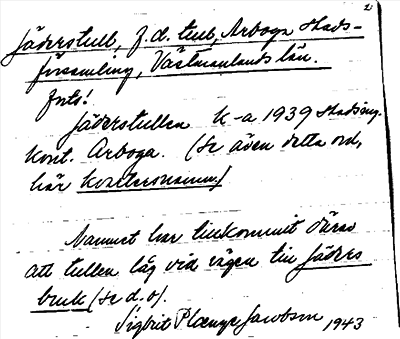 2
Jäderstull, f.d. tull, Arboga stads-
församling, Västmanlands län.
Forts!
Jäderstullen k-a 1939 Stadsing.
kont. Arboga. (Se även detta ord,
här kvartersnamn.)
Namnet har tillkommit därav
att tullen låg vid vägen till Jäders
bruk (se d.o).
Sigbrit Plænge Jacobson 1943